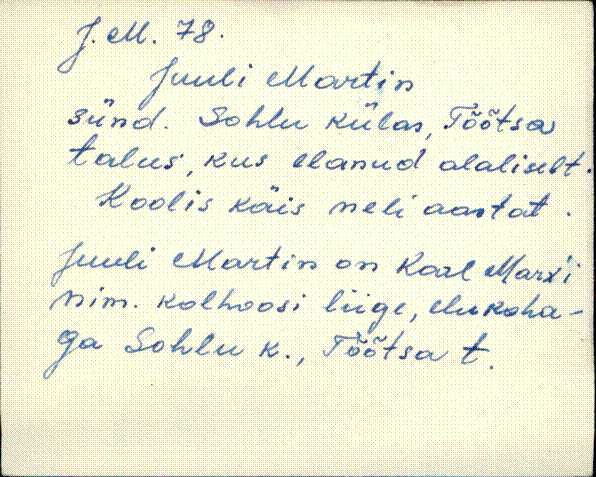 J. M. 78.
Juuli Martin
sünd. Sohlu külas, Tõõtsa
talus, kus elanud alaliselt.
Koolis käis neli aastat.
Juuli Martin on Karl Marx'i
nim. kolhoosi liige, elukoha-
ga Sohlu k., Tõõtsa t.